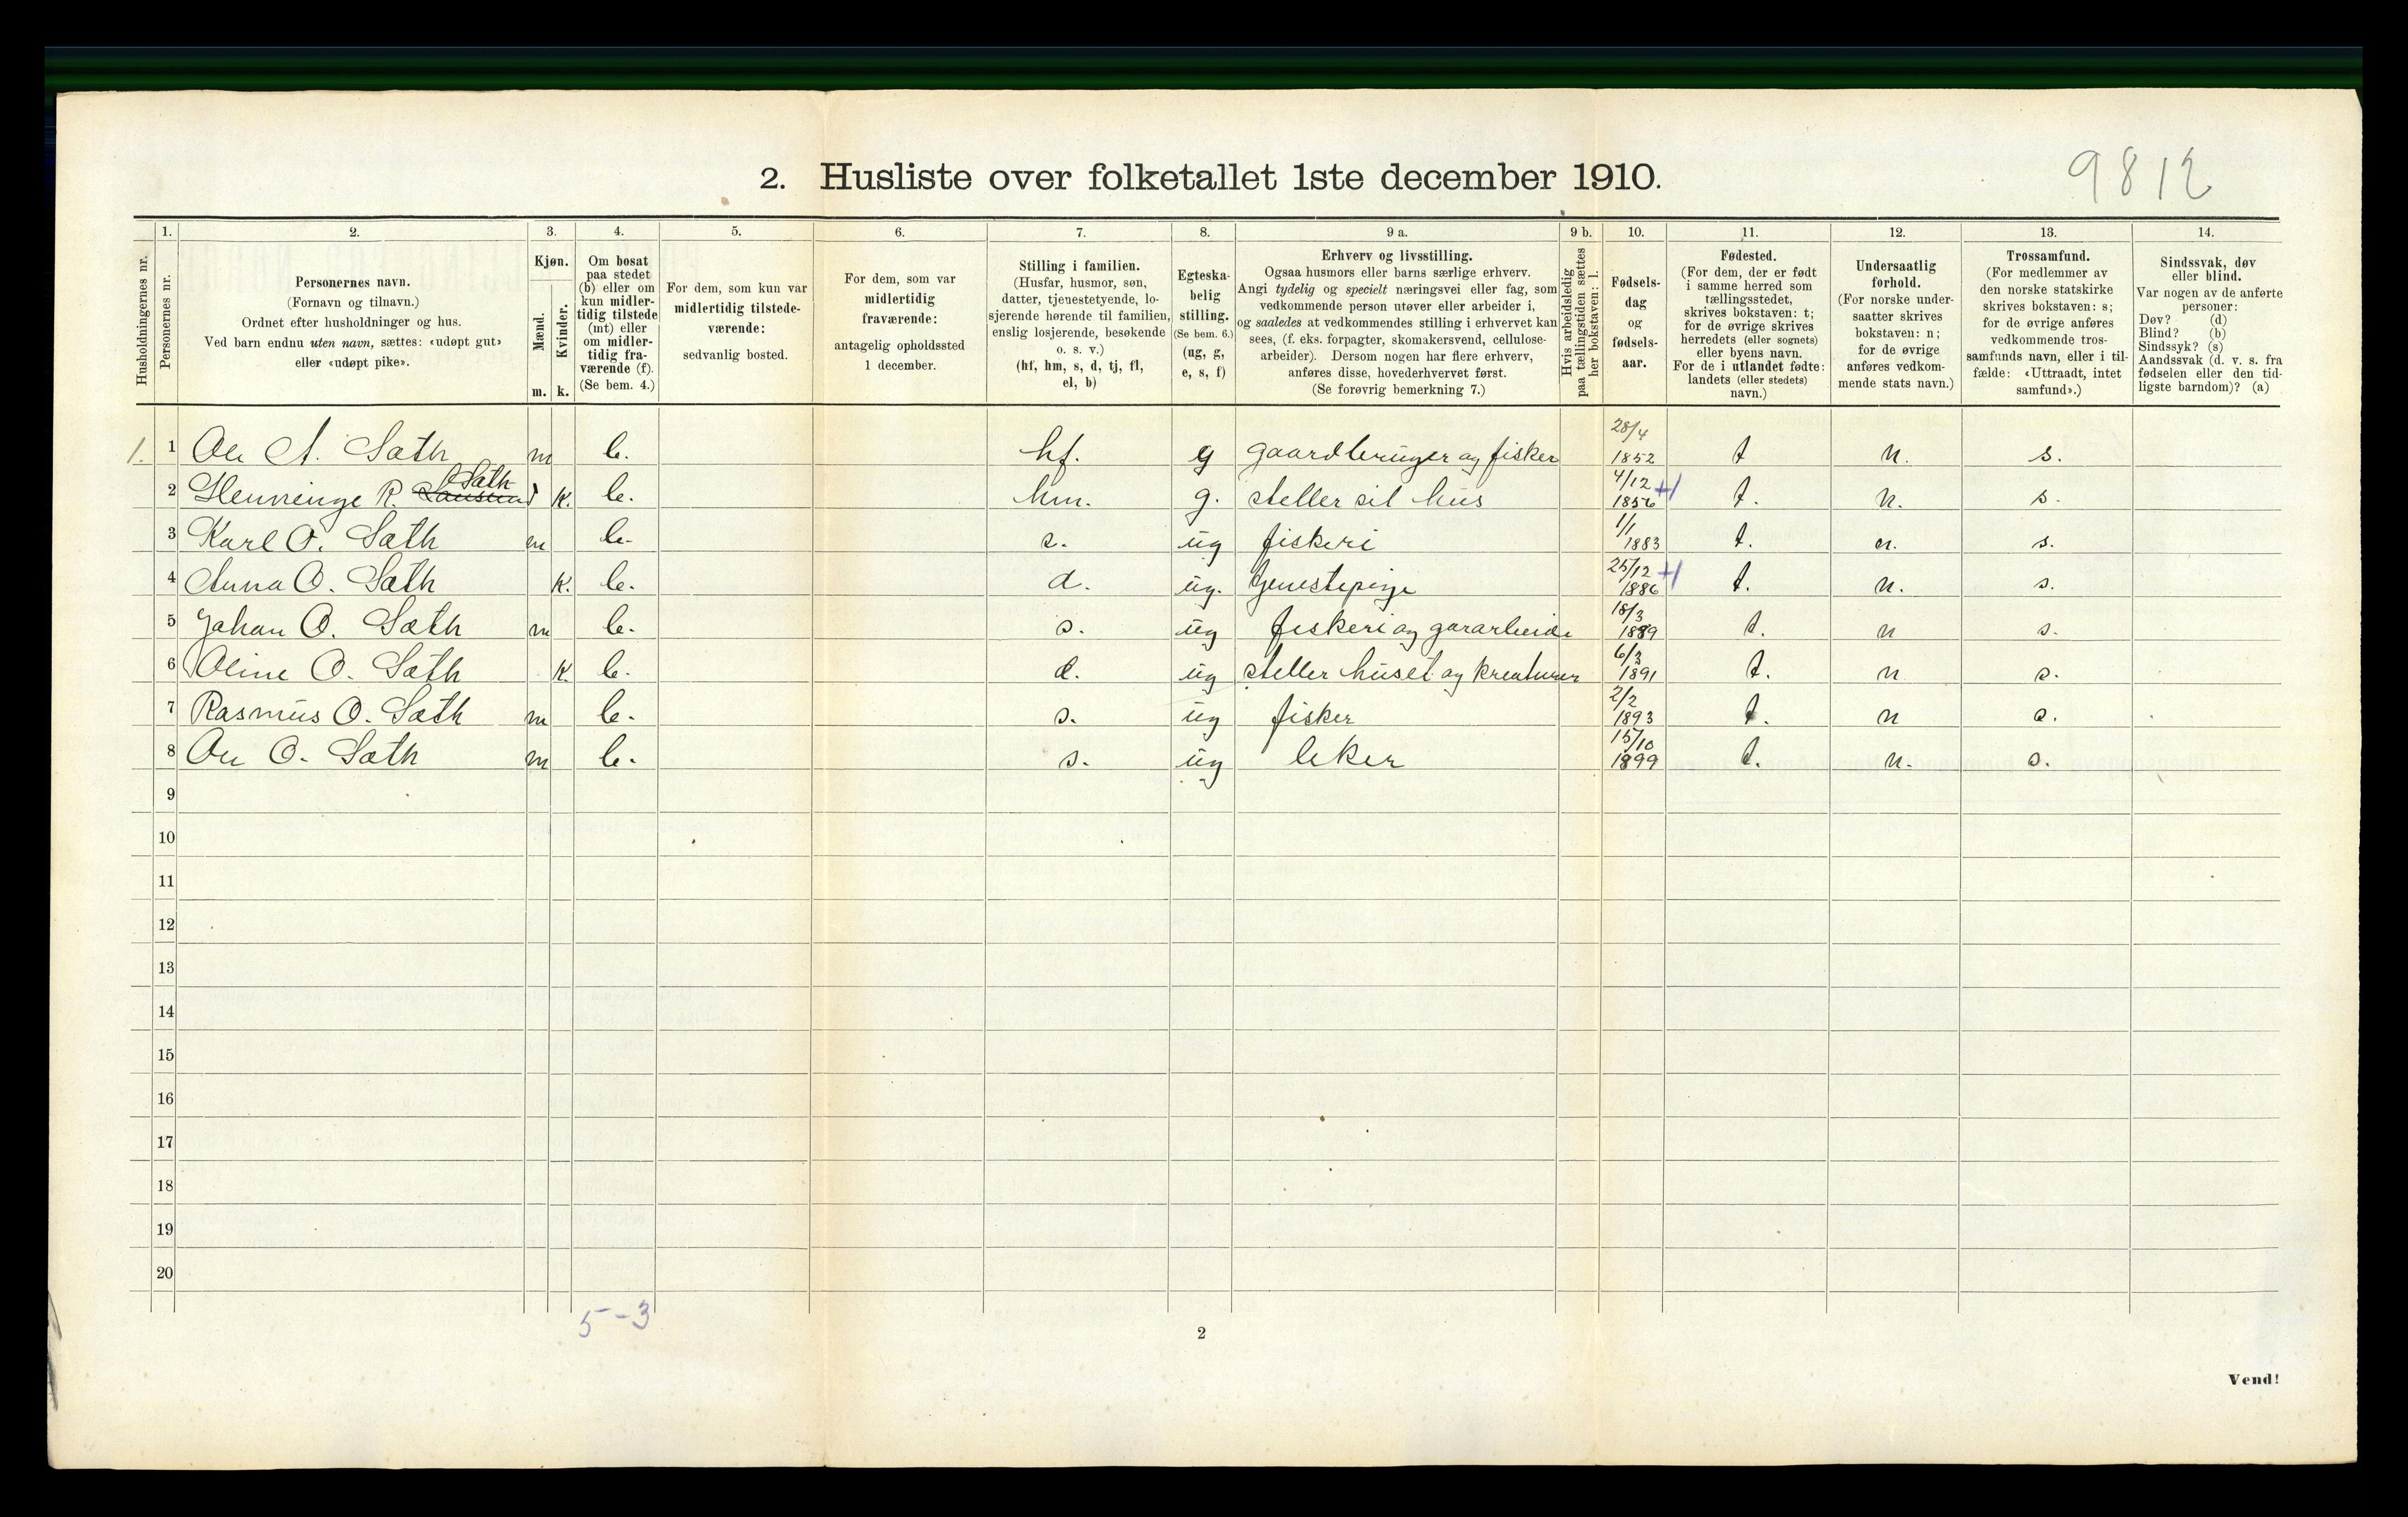 9812
2. Husliste over folketallet 1ste december 1910.
Husholdningernes nr.
1.
Personernes nr.
2.
Personernes navn.
(Fornavn og tilnavn.)
Ordnet efter husholdninger og hus.
Ved barn endnu uten navn, sættes: «udøpt gut»
eller «udøpt pike».
3.
Kjøn.
Mænd.
Kvinder.
m. k.
4.
Om bosat
paa stedet
(b) eller om
kun midler-
tidig tilstede
(mt) eller
om midler-
tidig fra-
værende (f).
(Se bem. 4.)
5.
For dem, som kun var
midlertidig tilstede-
værende:
sedvanlig bosted.
6.
For dem, som var
midlertidig
fraværende:
antagelig opholdssted
1 december.
7.
Stilling i familien.
(Husfar, husmor, søn,
datter, tjenestetyende, lo-
sjerende hørende til familien,
enslig losjerende, besøkende
o. s. v.)
(hf, hm, s, d, tj, fl,
el, b)
8.
Egteska-
belig
stilling.
(Se bem. 6.)
(ug, g,
e, s, f)
9 a.
Erhverv og livsstilling.
Ogsaa husmors eller barns særlige erhverv.
Angi tydelig og specielt næringsvei eller fag, som
vedkommende person utøver eller arbeider i,
og saaledes at vedkommendes stilling i erhvervet kan
sees, (f. eks. forpagter, skomakersvend, cellulose-
arbeider). Dersom nogen har flere erhverv,
anføres disse, hovederhvervet først.
(Se forøvrig bemerkning 7.)
9 b.
Hvis arbeidsledig
paa tællingstiden sættes
her bokstaven: l.
10.
Fødsels-
dag
og
fødsels-
aar.
11.
Fødested.
(For dem, der er født
i samme herred som
tællingsstedet,
skrives bokstaven: t;
for de øvrige skrives
herredets (eller sognets)
eller byens navn.
For de i utlandet fødte:
landets (eller stedets)
navn.)
12.
Undersaatlig
forhold.
(For norske under-
saatter skrives
bokstaven: n;
for de øvrige
anføres vedkom-
mende stats navn.)
13.
Trossamfund.
(For medlemmer av
den norske statskirke
skrives bokstaven: s;
for de øvrige anføres
vedkommende tros-
samfunds navn, eller i til-
fælde: «Uttraadt, intet
samfund».)
14.
Sindssvak, døv
eller blind.
Var nogen av de anførte
personer:
Døv? (d)
Blind? (b)
Sindssyk? (s)
Aandssvak (d. v. s. fra
fødselen eller den tid-
ligste barndom)? (a)
1. 1 Ole A. Sæth m b. hf. g gaardbruger og fisker 28/4 1852 t n. s.
2 Henninge R. Sæth k. b. hm. g. steller sit hus 4/12 1856 t. n. s.
3 Karl O. Sæth m b. s. ug fiskeri 1/1 1883 t. n. s.
4 Anna O. Sæth k. b. d. ug. tjenestepige 25/12 1886 t. n. s.
5 Johan O. Sæth m b. s. ug fiskeri og gararbeide 18/3 1889 t. n s.
6 Oline O. Sæth k. b. d. ug steller huset og kreaturer 6/3 1891 t. n s.
7 Rasmus O. Sæth m b. s. ug fisker 2/2 1893 t. n s.
8 Ole O. Sæth m b. s. ug leker 15/10 1899 t. n. s.
9
10
11
12
13
14
15
16
17
18
19
20
5-3
2
Vend!